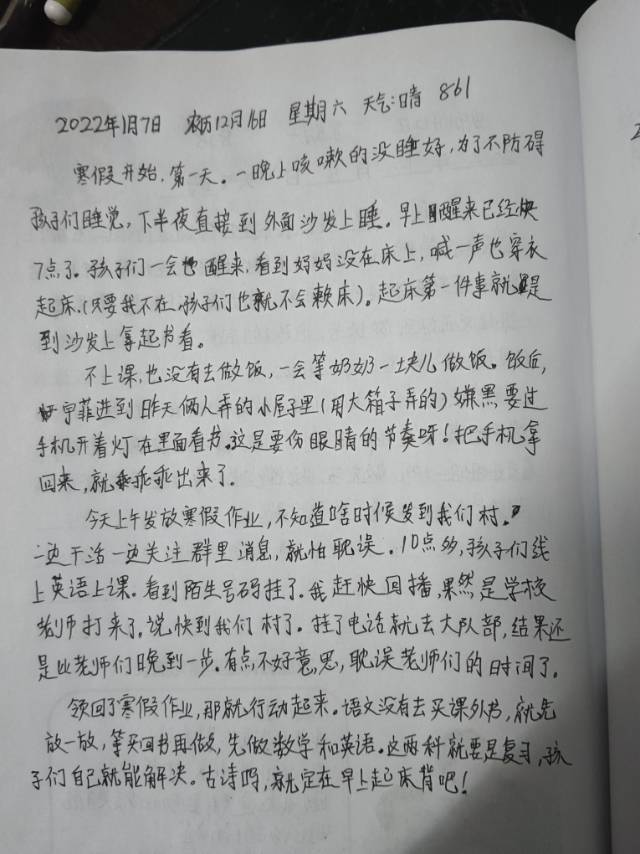 2022年1月7日 农历12月16日 星期六 天气:晴 861
寒假开始,第一天。一晚上咳嗽的没睡好,为了不防碍
孩子们睡觉,下半夜直接到外面沙发上睡。早上醒来已经快
7点了。孩子们一会也醒来,看到妈妈没在床上,喊一声也穿衣
起床。(只要我不在,孩子们也就不会赖床)。起床第一件事就是
到沙发上拿起书看。
不上课,也没有去做饭,一会等奶奶一块儿做饭。饭后,
宇菲进到昨天俩人弄的小屋子里(用大箱子弄的)嫌黑要过
手机开着灯在里面看书。这是要伤眼睛的节奏呀!把手机拿
回来,就乖乖乖出来了。
今天上午发放寒假作业,不知道啥时候发到我们村。
一边干活一边关注群里消息,就怕耽误。10点多,孩子们线
上英语上课。看到陌生号码挂了。我赶快回播,果然是学校
老师打来了。说快到我们村了。挂了电话就去大队部,结果还
是比老师们晚到一步。有点不好意思,耽误老师们的时间了。
领回了寒假作业,那就行动起来。语文没有去买课外书,就先
放一放,等买回书再做,先做数学和英语。这两科就要是复习,孩
子们自己就能解决。古诗吗,就定在早上起床背吧!